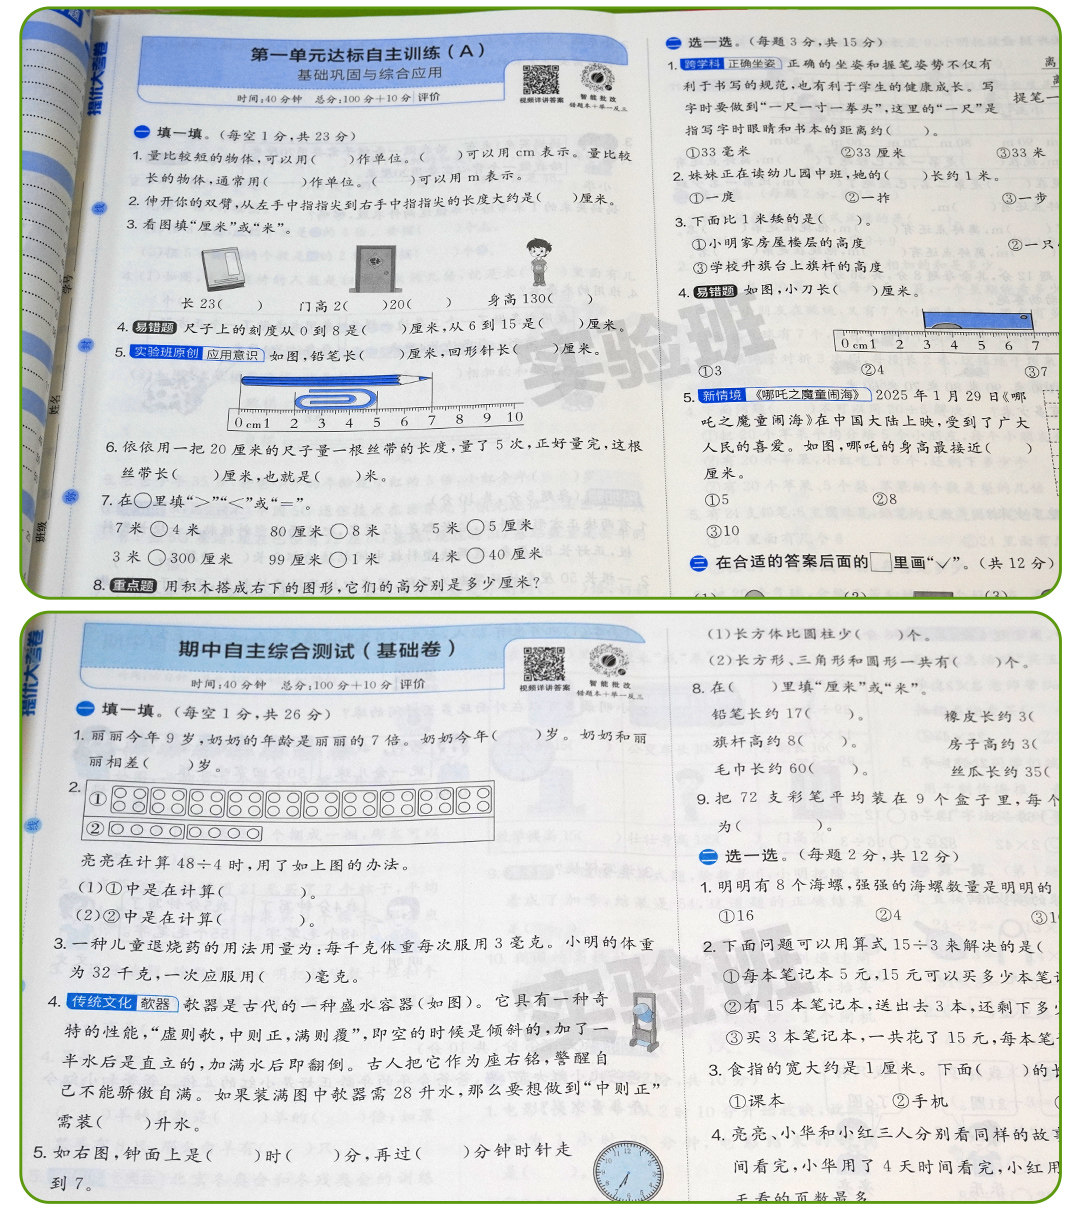 提优大考卷
第一单元达标自主训练（A）
基础巩固与综合应用
时间:40分钟 总分:100分＋10分 评价
视频详讲答案
智能批改
错题本＋举一反三
一 填一填。(每空1分,共23分)
1. 量比较短的物体,可以用( )作单位。( )可以用cm表示。量比较
长的物体,通常用( )作单位。( )可以用m表示。
2. 伸开你的双臂,从左手中指指尖到右手中指指尖的长度大约是( )厘米。
3. 看图填“厘米”或“米”。
长23( ) 门高2( )20( ) 身高130( )
4. 易错题 尺子上的刻度从0到8是( )厘米,从6到15是( )厘米。
5. 实验班原创 应用意识 如图,铅笔长( )厘米,回形针长( )厘米。
0 cm1 2 3 4 5 6 7 8 9 10
6. 依依用一把20厘米的尺子量一根丝带的长度,量了5次,正好量完,这根
丝带长( )厘米,也就是( )米。
7. 在○里填“>”“<”或“=”。
7米○4米 80厘米○8米 5米○5厘米
3米○300厘米 99厘米○1米 4米○40厘米
8. 重点题 用积木搭成右下的图形,它们的高分别是多少厘米?
学号
姓名
班级
线
封
密
实验班
二 选一选。(每题3分,共15分)
1. 跨学科 正确坐姿 正确的坐姿和握笔姿势不仅有
利于书写的规范,也有利于学生的健康成长。写
字时要做到“一尺一寸一拳头”,这里的“一尺”是
指写字时眼睛和书本的距离约( )。
①33毫米 ②33厘米 ③33米
离
离
提笔一
2. 妹妹正在读幼儿园中班,她的( )长约1米。
①一度 ②一拃 ③一步
3. 下面比1米矮的是( )。
①小明家房屋楼层的高度 ②一只
③学校升旗台上旗杆的高度
4. 易错题 如图,小刀长( )厘米。
0 cm1 2 3 4 5 6 7
①3 ②4 ③7
5. 新情境 《哪吒之魔童闹海》 2025年1月29日《哪
吒之魔童闹海》在中国大陆上映,受到了广大
人民的喜爱。如图,哪吒的身高最接近( )
厘米。
①5 ②8
③10
三 在合适的答案后面的□里画“√”。(共12分)
提优大考卷
期中自主综合测试（基础卷）
时间:40分钟 总分:100分＋10分 评价
视频详讲答案
智能批改
错题本＋举一反三
一 填一填。(每空1分,共26分)
1. 丽丽今年9岁,奶奶的年龄是丽丽的7倍。奶奶今年( )岁。奶奶和丽
丽相差( )岁。
2.
①
②
亮亮在计算48÷4时,用了如上图的办法。
(1)①中是在计算( )。
(2)②中是在计算( )。
3. 一种儿童退烧药的用法用量为:每千克体重每次服用3毫克。小明的体重
为32千克,一次应服用( )毫克。
4. 传统文化 欹器 欹器是古代的一种盛水容器(如图)。它具有一种奇
特的性能,“虚则欹,中则正,满则覆”,即空的时候是倾斜的,加了一
半水后是直立的,加满水后即翻倒。古人把它作为座右铭,警醒自
己不能骄傲自满。如果装满图中欹器需28升水,那么要想做到“中则正”
需装( )升水。
5. 如右图,钟面上是( )时( )分,再过( )分钟时针走
到7。
线
实验班
(1)长方体比圆柱少( )个。
(2)长方形、三角形和圆形一共有( )个。
8. 在( )里填“厘米”或“米”。
铅笔长约17( )。 橡皮长约3(
旗杆高约8( )。 房子高约3(
毛巾长约60( )。 丝瓜长约35(
9. 把72支彩笔平均装在9个盒子里,每个
为( )。
二 选一选。(每题2分,共12分)
1. 明明有8个海螺,强强的海螺数量是明明的
①16 ②4 ③1
2. 下面问题可以用算式15÷3来解决的是(
①每本笔记本5元,15元可以买多少本笔记
②有15本笔记本,送出去3本,还剩下多少
③买3本笔记本,一共花了15元,每本笔
3. 食指的宽大约是1厘米。下面( )的长
①课本 ②手机
4. 亮亮、小华和小红三人分别看同样的故事
间看完,小华用了4天时间看完,小红用
天看的页数最多